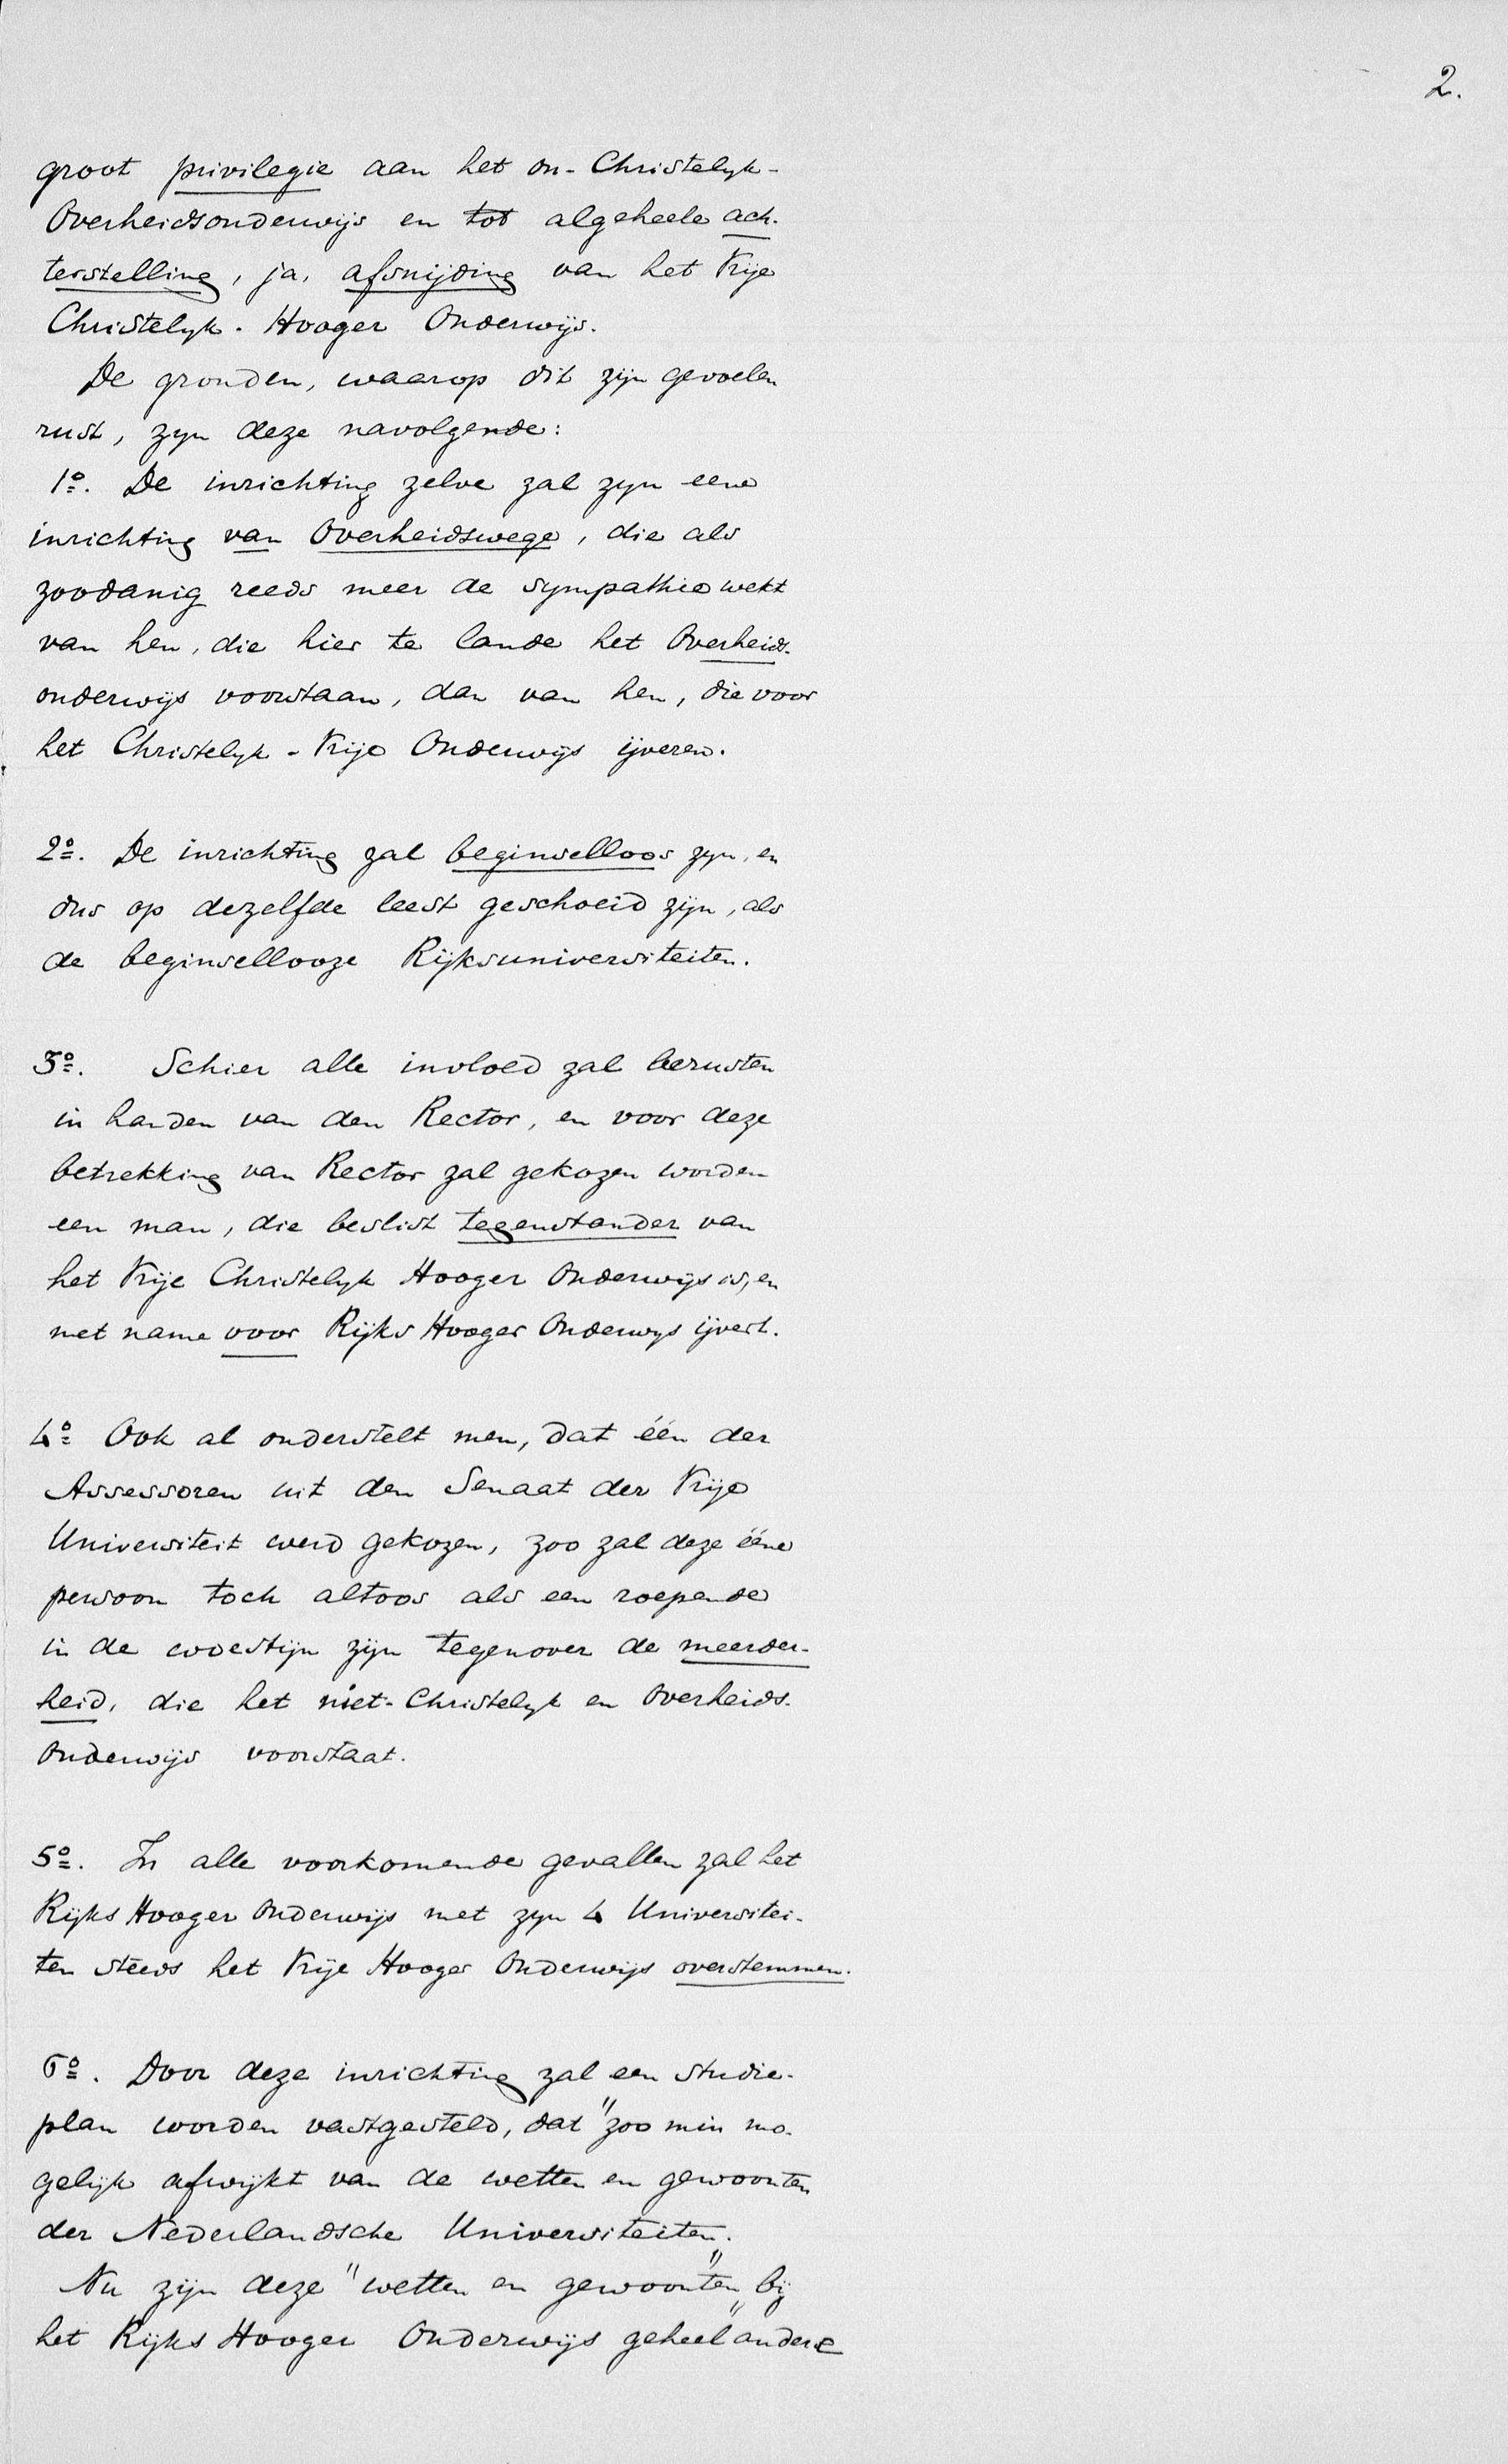 2.
groot privilegie aan het on-Christelyk-
Overheidsonderwijs en tot algeheele ach-
terstelling, ja, afsnijding van het Vrije
Christelyk-Hooger Onderwijs.
De gronden, waarop dit zijn gevoelen
rust, zyn deze navolgende:
1º. De inrichting zelve zal zyn eene
inrichting van Overheidswege, die als
zoodanig reeds meer de sympathie wekt
van hen, die hier te lande het Overheids-
onderwijs voorstaan, dan van hen, die voor
het Christelyk-Vrije Onderwijs ijveren.
2º. De inrichting zal beginselloos zyn, en
dus op dezelfde leest geschoeid zijn, als
de beginsellooze Rijksuniversiteiten.
3º. Schier alle invloed zal berusten
in handen van den Rector, en voor deze
betrekking van Rector zal gekozen worden
een man, die beslist tegenstander van
het Vrije Christelyk Hooger Onderwijs is, en
met name voor Rijks Hooger Onderwys ijvert.
4º Ook al onderstelt men, dat één der
Assessoren uit den Senaat der Vrije
Universiteit werd gekozen, zoo zal deze ééne
persoon toch altoos als een roepende
in de woestijn zijn tegenover de meerder-
heid, die het niet-Christelyk en Overheids-
onderwijs voorstaat.
5º. In alle voorkomende gevallen zal het
Rijks Hooger Onderwijs met zyn 4 Universitei-
ten steeds het Vrije Hooger Onderwijs overstemmen.
6º. Door deze inrichting zal een studie-
plan worden vastgesteld, dat "zoo min mo-
gelijk afwijkt van de wetten en gewoonten
der Nederlandsche Universiteiten."
Nu zijn deze "wetten en gewoonten" bij
het Rijks Hooger Onderwijs geheel andere